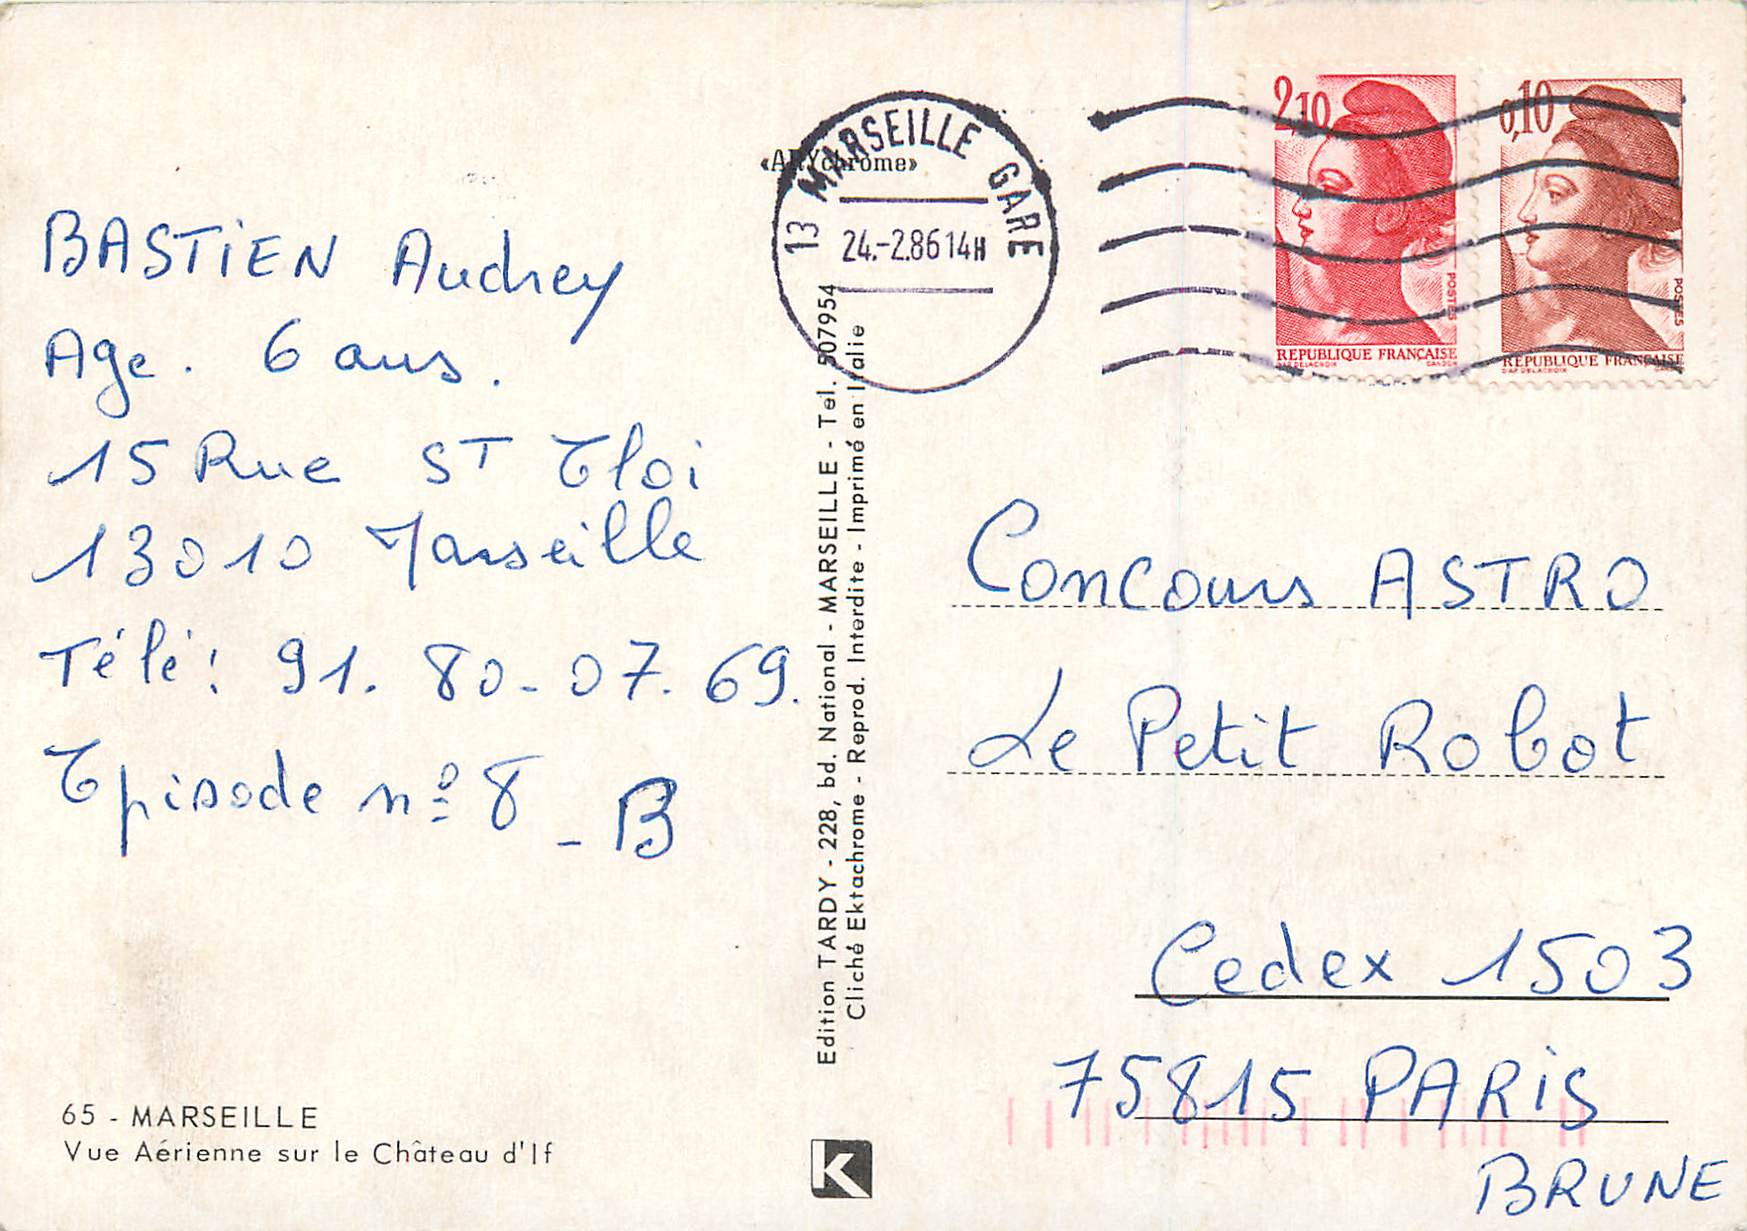 BASTIEN Audrey
Age. 6 ans.
15 Rue ST Eloi
13010 Marseille
Télé: 91. 80-07.69.
Episode n° 8 - B
65 - MARSEILLE
Vue Aérienne sur le Château d'If
Edition TARDY - 228, bd. National - MARSEILLE - Tel. 507954
Cliché Ektachrome - Reprod. Interdite - Imprimé en Italie
«ARYchrome»
13 MARSEILLE GARE
24.-2.86 14H
2,10
POSTES
REPUBLIQUE FRANÇAISE
D'AP DELACROIX GANDON
0,10
POSTES
REPUBLIQUE FRANÇAISE
D'AP DELACROIX GANDON
Concours ASTRO
Le Petit Robot
Cedex 1503
75815 PARIS
BRUNE
K